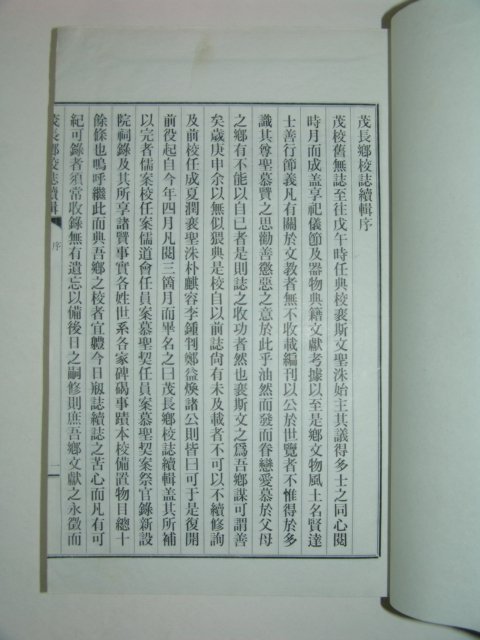 茂長鄕校誌續輯序
茂校舊無誌至往戊午時任典校裵斯文聖洙始主其議得多士之同心閱
時月而成盖享祀儀節及器物典籍文獻考據以至是鄕文物風土名賢達
士善行節義凡有關於文敎者無不收載編刊以公於世覽者不惟得於多
識其尊聖慕賢之思勸善懲惡之意於此乎油然而發而眷戀愛慕於父母
之鄕有不能以自已者是則誌之收功者然也裵斯文之爲吾鄕謀可謂善
矣歲庚申余以無似猥典是校自以前誌尙有未及載者不可不以續修詢
及前校任成夏潤裵聖洙朴麒容李鍾判鄭益煥諸公則皆曰可于是復開
前役起自今年四月凡閱三箇月而畢名之曰茂長鄕校誌續輯盖其所補
以完者儒案校任案儒道會任員案慕聖契任員案慕聖契案祭官錄新設
院祠錄及其所享諸賢事實各姓世系各家碑碣事蹟本校備置物目總十
餘條也嗚呼繼此而典吾鄕之校者宜軆今日刱誌續誌之苦心而凡有可
紀可錄者須常收錄無有遺忘以備後日之嗣修則庶吾鄕文獻之永徵而
茂長鄕校誌續輯
序